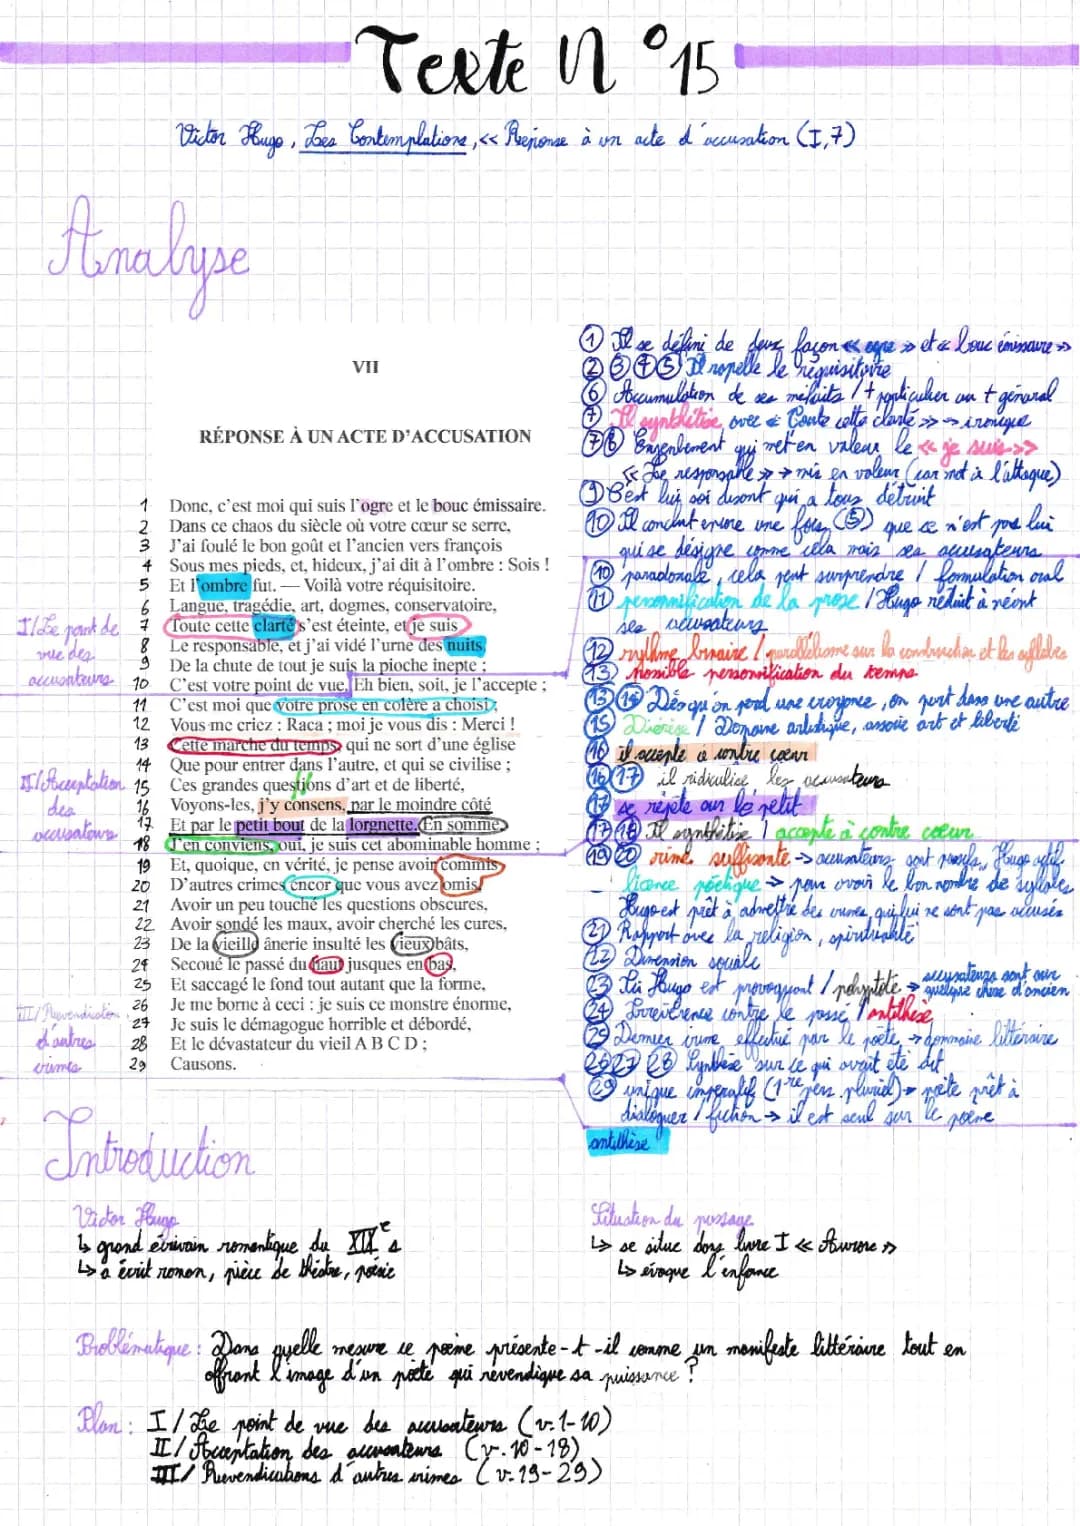 Texte N°15
Victor Hugo, Les Contemplations, << Réponse à un acte d'accusation (I,7)
Analyse
VII
RÉPONSE À UN ACTE D'ACCUSATION
1 Donc, c'est moi qui suis l'ogre et le bouc émissaire.
2 Dans ce chaos du siècle où votre cœur se serre,
3 J'ai foulé le bon goût et l'ancien vers françois
4 Sous mes pieds, et, hideux, j'ai dit à l'ombre : Sois !
5 Et l'ombre fut. — Voilà votre réquisitoire.
6 Langue, tragédie, art, dogmes, conservatoire,
7 Toute cette clarté s'est éteinte, et je suis
8 Le responsable, et j'ai vidé l'urne des nuits.
9 De la chute de tout je suis la pioche inepte ;
10 C'est votre point de vue. Eh bien, soit, je l'accepte ;
11 C'est moi que votre prose en colère a choisi ;
12 Vous me criez : Raca ; moi je vous dis : Merci !
13 Cette marche du temps, qui ne sort d'une église
14 Que pour entrer dans l'autre, et qui se civilise ;
15 Ces grandes questions d'art et de liberté,
16 Voyons-les, j'y consens, par le moindre côté
17 Et par le petit bout de la lorgnette. En somme,
18 J'en conviens, oui, je suis cet abominable homme ;
19 Et, quoique, en vérité, je pense avoir commis
20 D'autres crimes encor que vous avez omis,
21 Avoir un peu touché les questions obscures,
22 Avoir sondé les maux, avoir cherché les cures,
23 De la vieille ânerie insulté les vieux bâts,
24 Secoué le passé du haut jusques en bas,
25 Et saccagé le fond tout autant que la forme,
26 Je me borne à ceci : je suis ce monstre énorme,
27 Je suis le démagogue horrible et débordé,
28 Et le dévastateur du vieil A B C D ;
29 Causons.
I/ Le point de
vue des
accusateurs
II/ Acceptation
des
accusateurs
III/ Revendication
d'autres
crimes
① Il se défini de deux façon << ogre >> et << bouc émissaire >>
② ③ ④ ⑤ Il rapelle le réquisitoire
⑥ Accumulation de ses méfaits / + particulier au + général
⑦ Il synthétise avec << Toute cette clarté >> → ironique
⑦⑧ Enjenbement qui met en valeur le << je suis >>
<< Le responsable >> → mis en valeur (car mot à l'attaque)
⑨ C'est lui soi disant qui a tous détruit
⑩ Il conclut encore une fois (⑤) que ce n'est pas lui
qui se désigne comme cela mais ses accusateurs
⑩ paradoxale, cela peut surprendre / formulation oral
⑪ personnification de la prose / Hugo réduit à néant
ses accusateurs
⑫ rythme binaire / parallélisme sur la construction et les syllabes
⑬ possible personnification du temps
⑬ ⑭ Dès qu'on perd une croyance, on part dans une autre
⑮ Diérèse / Domaine artistique, associe art et liberté
⑯ il accepte à contre cœur
⑯ ⑰ il ridiculise les accusateurs
⑰ se répète sur le petit
⑰ ⑱ Il synthétise / accepte à contre cœur
⑲ ⑳ rime suffisante → accusateurs sont passifs, Hugo actif
licence poétique → pour avoir le bon nombre de syllabes
Hugo est prêt à admettre des crimes qui lui ne sont pas accusés
㉑ Rapport avec la religion, spiritualité
㉒ Dimension sociale
㉓ Ici Hugo est provoquant / polyptote → accusateurs sont sur
quelque chose d'ancien
㉔ Irrévérence contre le passé / antithèse
㉕ Dernier crime effectué par le poète → domaine littéraire
㉖ ㉗ ㉘ Synthèse sur ce qui avait été dit
㉙ unique impératif (1re pers. pluriel) → poète prêt à
dialoguer / fiction → il est seul sur le poème
antithèse
Introduction
Victor Hugo
↳ grand écrivain romantique du XIXe s
↳ a écrit roman, pièce de théâtre, poésie
Situation du passage
↳ se situe dans livre I << Aurore >>
↳ évoque l'enfance
Problématique : Dans quelle mesure ce poème présente-t-il comme un manifeste littéraire tout en
offrant l'image d'un poète qui revendique sa puissance ?
Plan : I/ Le point de vue des accusateurs (v.1-10)
II/ Acceptation des accusateurs (v.10-18)
III/ Revendications d'autres crimes (v.19-29)